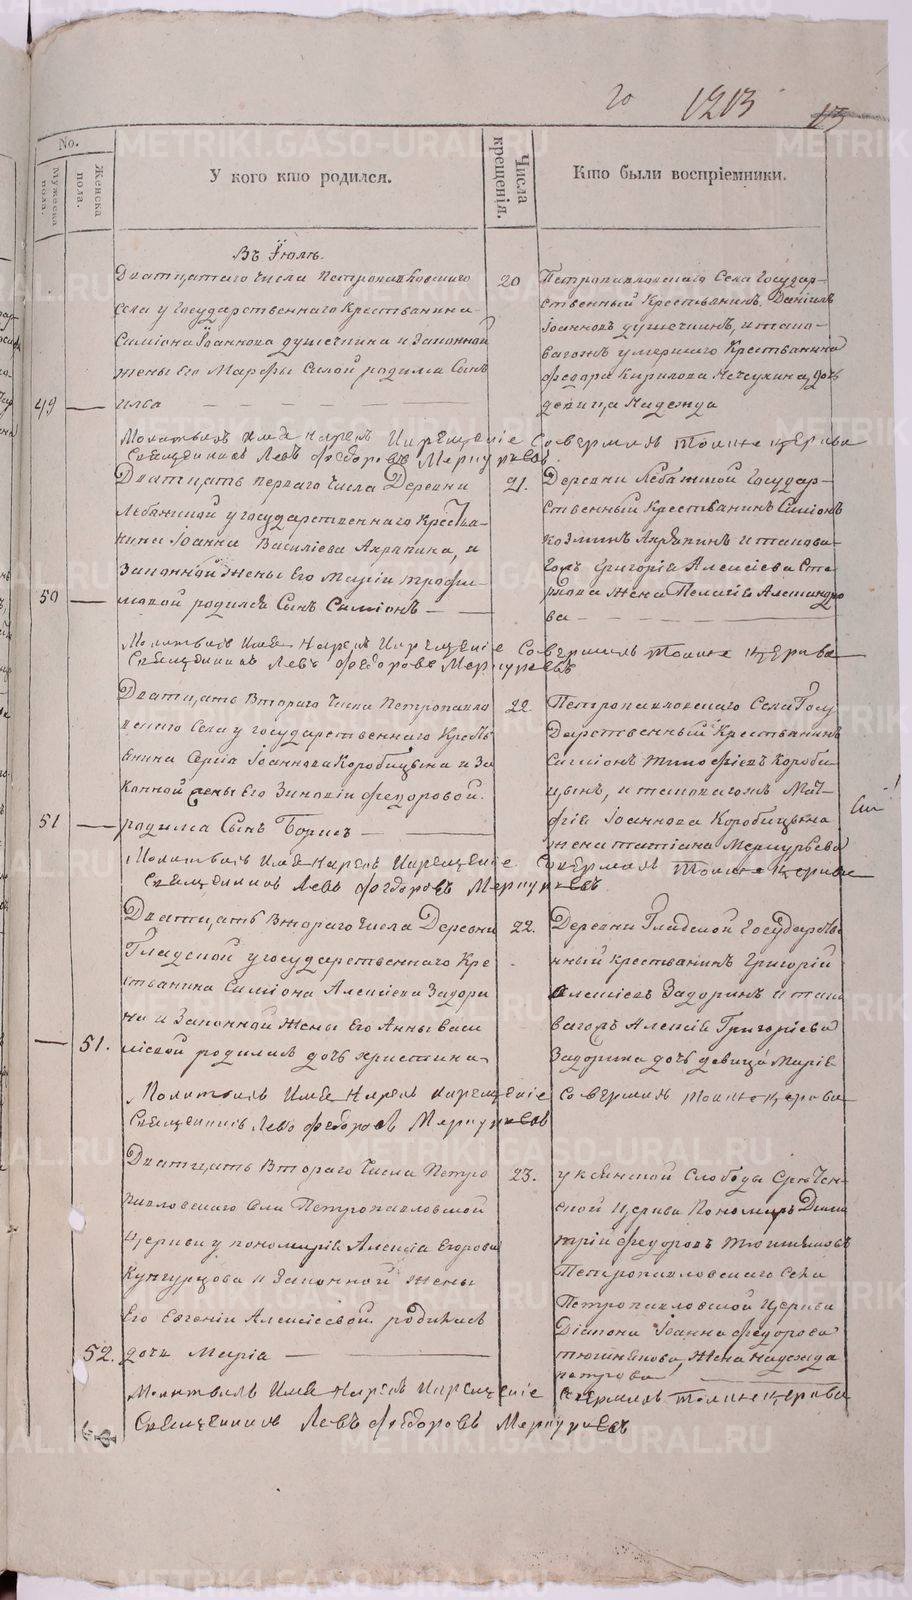 го 1213 13
No.
Мужеска пола.
Женска пола.
У кого кто родился.
Числа крещенія.
Кто были воспріемники.
Въ Іюлѣ.
Дватцатаго Числа Петропавловскаго
села у государственнаго крестьянина
Симіона Іоаннова душечкина и законной
жены Его Марфы родился Сынъ
49 — Илья
20
Петропавловскаго Села Государ-
ственный Крестьянинъ Даніилъ
Іоанновъ душечкинъ, и тако-
вагожъ умершаго Крестьянина
федора Кирилова дочь
девица Надежда
Молитвалъ Имя Нарекъ И крещеніе Совершилъ тояже церкви
Священникъ Левъ федоровъ Меркурьевъ
Дватцать перваго Числа Деревни
Лебяжской у государственнаго Крестья-
нина Іоанна Василіева Ахряпина, и
Законной жены Его Маріи трофи-
50 — мовой родился Сынъ Симіонъ
21.
Деревни Лебяжской Государ-
ственный Крестьянинъ Симіонъ
козминъ Ахряпинъ и такова-
гожъ Григорія Алексіева
жена Пелагія Алесандро
ва
Молитвалъ Имя Нарекъ И крещеніе Совершилъ тояже церкви
Священникъ Левъ федоровъ Меркурьевъ
Дватцать Втораго Числа Петропавло
вскаго Села у государственнаго Кресть
янина Сергія Іоаннова Коробицына и За
конной жены Его Зиновіи федоровой
51 — родился Сынъ Борисъ
22
Петропавловскаго Села Госу
Дарственный Крестьянинъ
Симіонъ тимофіевъ Короби-
цынъ, и таковагожъ Мат-
фія Іоаннова Коробицына
жена татіана Меркурьева
Молитвалъ Имя Нарекъ И крещеніе Совершилъ тояже церкви
Священникъ Левъ федоровъ Меркурьевъ
Дватцать Втораго Числа Деревни
Гладской у государственнаго Кре
стьянина Симіона Алексіева Задори
на и Законной жены Его Анны Васи
— 51. ліевой родилась дочь христина
22.
Деревни Гладской Государстве
нный крестьянинъ Григорій
Алексіевъ Задоринъ и тако
вагожъ Алексія Григоріева
Задорина дочь девица Марія
Молитвалъ Имя Нарекъ и крещеніе Совершилъ тояже церкви
Священникъ Левъ федоровъ Меркурьевъ
Дватцать Втораго Числа Петро
павловскаго Села Петропавловской
Церкви у пономаря Алексія Егорова
Кунгурцова и Законной жены
Его Евгеніи Алексіевой родилась
52. дочь Марія
23.
Уксянской Слободы Срѣтен-
ской Церкви Пономарь Дими
трій федоровъ тюшняковъ
Петропавловскаго Села
Петропавловской Церкви
Діакона Іоанна федорова
тюшнякова, жена надежда
петрова
Молитвалъ Имя Нарекъ И крещеніе Совершилъ тояже церкви
Священникъ Левъ федоровъ Меркурьевъ
METRIKI.GASO-URAL.RU